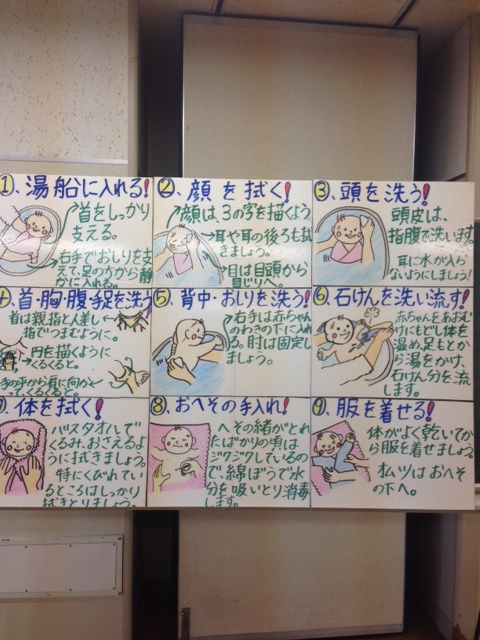 ①、湯船に入れる!
首をしっかり
支える。
右手でおしりを支
えて、足の方から静
かに入れる。
②、顔を拭く!
顔は、3の字を描くよう
耳や耳の後ろも拭
きましょう。
目は目頭から
目じりへ。
③、頭を洗う!
頭皮は、
指腹で洗います。
耳に水が入ら
ないようにしましょう!
首・胸・腹・手足を洗う
首は親指と人差し
指でつまむように。
円を描くように
くるくると。
手の平から肩に向かっ
てくるくると。
⑤、背中・おしりを洗う!
右手は赤ちゃん
のわきの下に入れ
る。肘は固定し
ましょう。
⑥、石けんを洗い流す!
赤ちゃんをあおむ
けにもどし体を
温め、足もとか
ら湯をかけ、
石けん分を流
します。
、体を拭く!
バスタオルで
くるみ、おさえるよう
に拭きましょう。
特にくびれてい
るところはしっかり
拭きとりましょう。
⑧、おへその手入れ!
へその緒がとれ
たばかりの頃は
ジクジクしているの
で、綿ぼうで水
分を吸いとり消毒
します。
⑨、服を着せる!
体がよく乾いてか
ら服を着せましょう
ツはおへそ
の下へ。